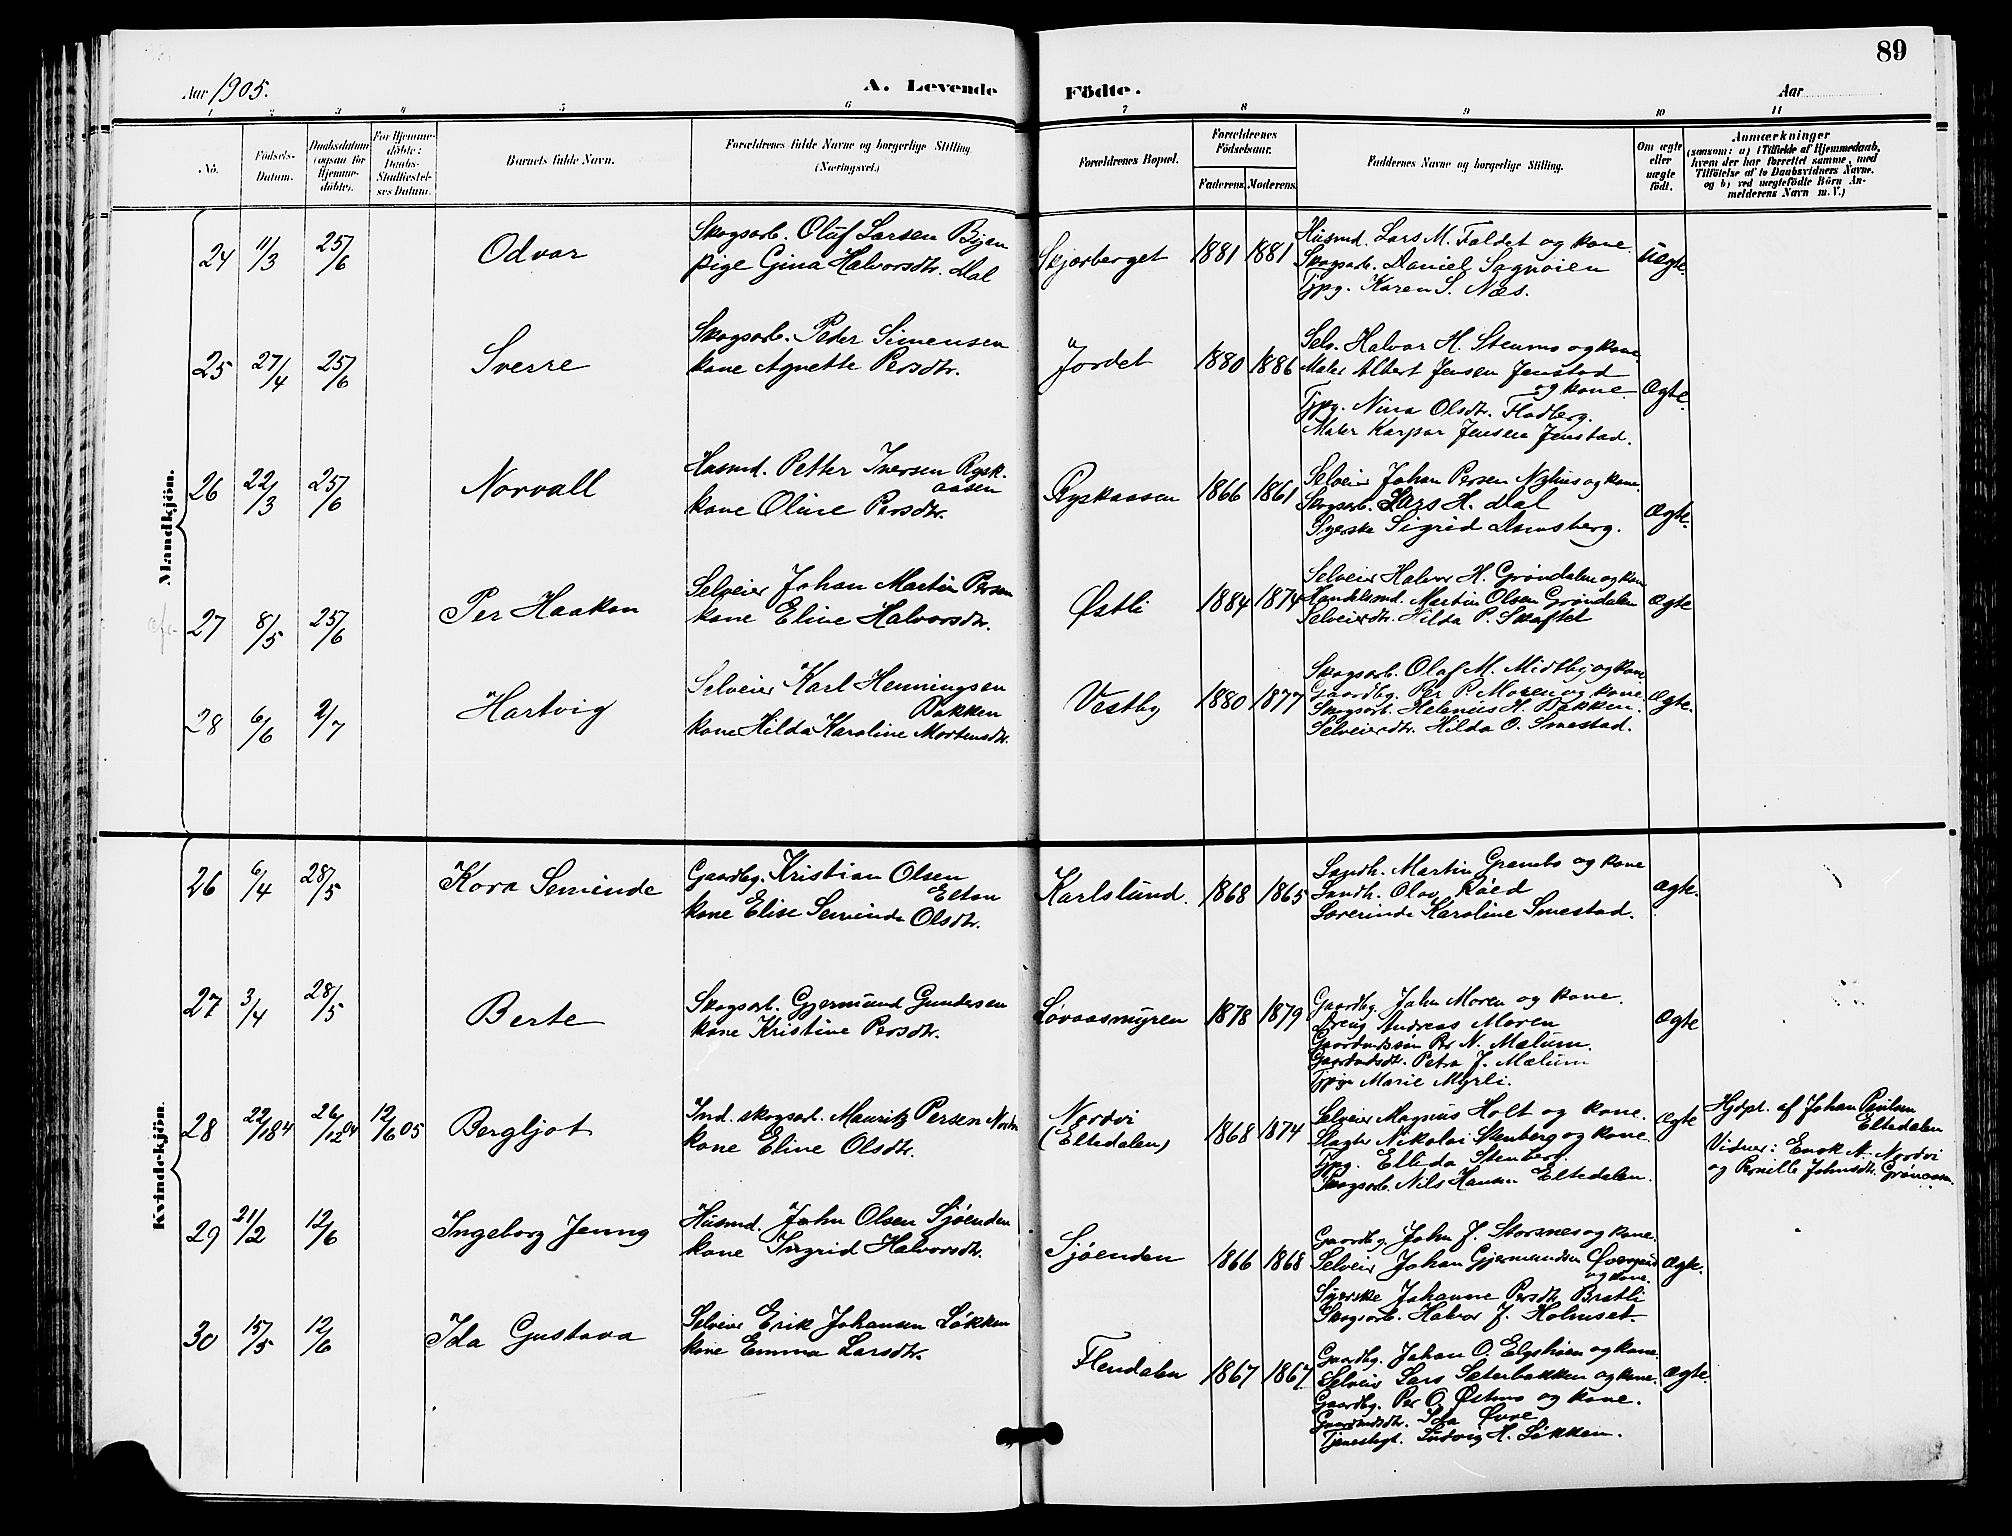 89
Aar 1905.
A. Levende Fødte.
Aar
1 2 3 4 5 6 7 8 9 10 11
No.
Födsels-Datum.
Daabsdatum (ogsaa for Hjemmedöbte).
For Hjemmedöbte: Daabs-Stadfæstelses Datum.
Barnets fulde Navn.
Forældrenes fulde Navne og borgerlige Stilling (Næringsvei.)
Forældrenes Bopæl.
Forældrenes Födselsaar.
Faderens. Moderens.
Faddernes Navne og borgerlige Stilling.
Om ægte eller uægte födt.
Anmærkninger
(saasom: a) i Tilfælde af Hjemmedaab, hvem der har forrettet samme, med Tilföielse af to Daabsvidners Navne. og b) ved uægtefödte Börn Anmelderens Navn m. V.)
Mandkjön.
24 11/3 25/6 Odvar
Skogsarb. Oluf Larsen Bjen
pige Gina Halvorsdtr. Dal
Skjærberget 1881 1881
Husmd. Lars M. Faldet og kone
Skogsarb. Daniel Sagnoien
Tjpg. Karen S. Næs.
Uægte.
25 27/4 25/6 Sverre
Skogsarb. Peder Simensen
kone Agnette Persdtr.
Jordet 1880 1886
Selv. Halvor H. Stenmo og kone
Maler Albert Jensen Jenstad
og kone.
Tjpg. Nina Olsdtr. Fladberg.
Maler Kaspar Jensen Jenstad.
Ægte.
26 22/3 25/6 Norvall
Husmd. Petter Iversen Rysk-
aasen
kone Oline Persdtr.
Ryskaasen 1866 1861
Selveier Johan Persen Nyhus og kone.
Skogsarb. Lars H. Dal
Syerske Sigrid
Ægte.
27 8/5 25/6 Per Haakon
Selveier Johan Martin Persen
kone Eline Halvorsdtr.
Østli 1884 1874
Selveier Halvor H. Grøndalen og kone
Handelsmd. Martin Olsen Grøndalen
Selveierdtr. Hilda P. Skaftet
Ægte
28 6/6 2/7 Hartvig
Selveier Karl Henningsen
Bakken
kone Hilda Karoline Mortensdtr.
Vestby 1880 1877
Skogsarb. Olaf M. Midtby og kone
Gaardbg. Per P. Mosen og kone.
Skogsarb. Helenius H. Bakken.
Selveierdtr. Hilda O. Smestad.
Ægte.
Kvindekjön.
26 6/4 28/5 Kora Seminde
Gaardbg. Kristian Olsen
Elton
kone Elise Seminda Olsdtr.
Karlslund. 1868 1865
Landh. Martin Grambo og kone
Landh. Olav Røed
Lærerinde Karoline Smestad.
Ægte.
27 3/4 28/5 Berte
Skogsarb. Gjermund Gundersen
kone Kristine Persdtr.
Løvaasmyren 1878 1879
Gaardbg. John Moren og kone.
Dreng Andreas Moren
Gaardmdssøn Per N. Mælum.
Gaardmdsdtr. Petra J. Mælum
Tjpige Marie Myrli.
Ægte
28 22/1804 26/1204 12/605 Bergljot
Ind. skogsarb. Mauritz Persen Nordvi
kone Eline Olsdtr.
Nordvi
(Eltedalen) 1868 1874
Selveier Magnus Holt og kone.
Slagter Nikolai Stenberg og kone.
Tjpg. Ellida Stenberg
Skogsarb. Nils Hansen Eltedalen.
Ægte
Hjdpt. af Johan Paulsen
Eltedalen
Vidner: Enok A. Nordvi
og Pernille Johnsdtr. Grønaasen.
29 21/2 12/6 Ingeborg Jenny
Husmd. John Olsen Sjøenden
kone Ingrid Halvorsdtr.
Sjøenden 1866 1868
Gaardbg. John J. Storsnes og kone.
Selveier Johan Gjermundsen
og kone.
Syerske Johanne Persdtr. Bratli
Skogsarb. Halvor J. Holmset.
Ægte.
30 15/5 12/6 Ida Gustava
Selveier Erik Johansen Løkken
kone Emma Larsdtr.
Flendalen 1867 1867
Gaardbg. Johan O. Elgshøen og kone.
Selveier Lars Sæterbakken og kone.
Gaardbg. Per O. Østmo og kone.
Gaardmdsdtr. Ida Øvre
Tjenestegt. Ludvig H. Løkken.
Ægte.